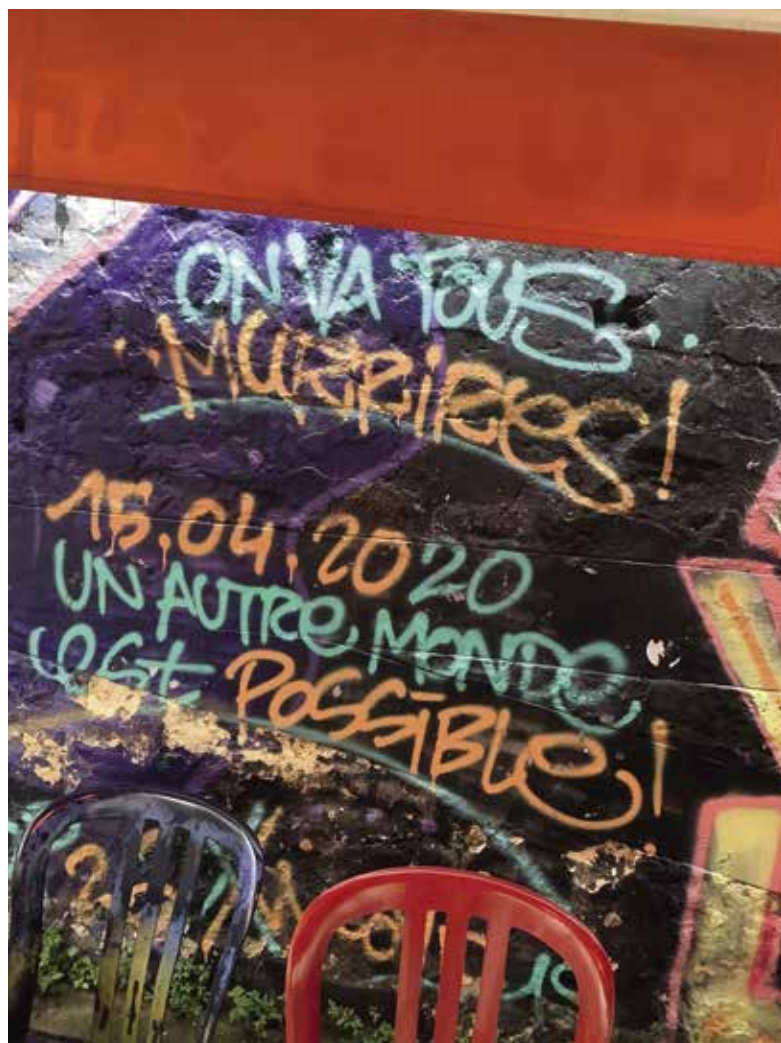 ON VA TOUS..
..MURRIRES!
15.04.2020
UN AUTRE MONDE
est POSSIBLE!